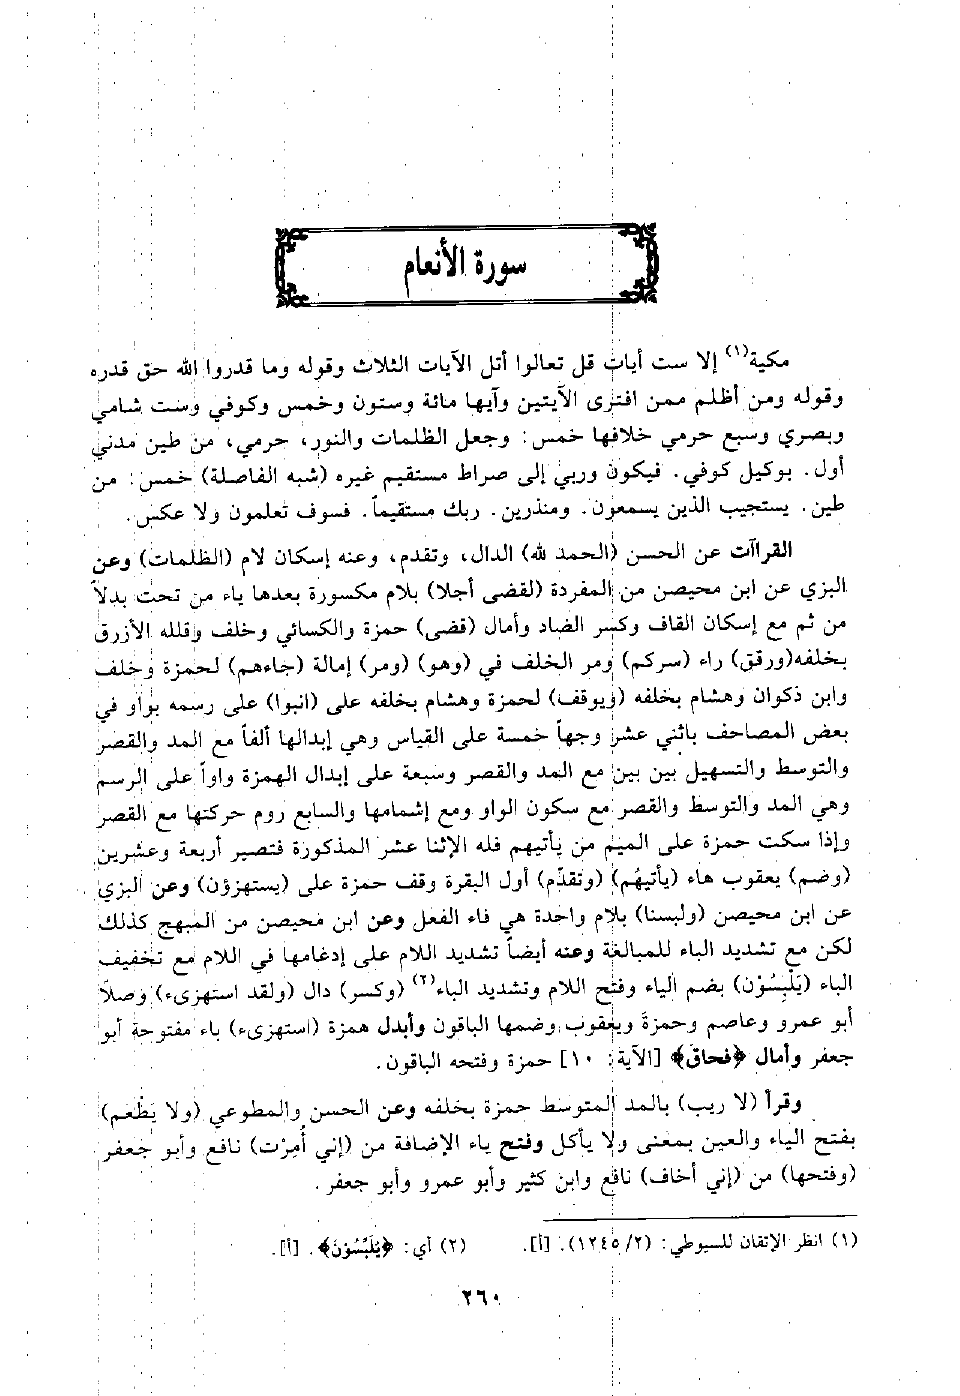 سورة الأنعام
مكية(١) إلا ست أيات قل تعالوا أتل الآيات الثلاث وقوله وما قدروا الله حق قدره
وقوله ومن أظلم ممن افترى الآيتين وآيها مائة وستون وخمس وكوفي وست شامي
وبصري وسبع حرمي خلافها خمس: وجعل الظلمات والنور، حرمي، من طين مدني
أول. بوكيل كوفي. فيكون وربي إلى صراط مستقيم غيره (شبه الفاصلة) خمس: من
طين. يستجيب الذين يسمعون. ومنذرين. ربك مستقيماً. فسوف تعلمون ولا عكس.
القراآت عن الحسن (الحمد لله) الدال، وتقدم، وعنه إسكان لام (الظلمات) وعن
البزي عن ابن محيصن من المفردة (لقضى أجلا) بلام مكسورة بعدها ياء من تحت بدلاً
من ثم مع إسكان القاف وكسر الضاد وأمال (قضى) حمزة والكسائي وخلف وقلله الأزرق
بخلفه(ورقق) راء (سركم) ومر الخلف في (وهو) (ومر) إمالة (جاءهم) لحمزة وخلف
وابن ذكوان وهشام بخلفه (ويوقف) لحمزة وهشام بخلفه على (انبوا) على رسمه بواو في
بعض المصاحف باثني عشر وجهاً خمسة على القياس وهي إبدالها ألفاً مع المد والقصر
والتوسط والتسهيل بين بين مع المد والقصر وسبعة على إبدال الهمزة واواً على الرسم
وهي المد والتوسط والقصر مع سكون الواو ومع إشمامها والسابع روم حركتها مع القصر
وإذا سكت حمزة على الميم من يأتيهم فله الإثنا عشر المذكورة فتصير أربعة وعشرين
(وضم) يعقوب هاء (يأتيهُم) (وتقدّم) أول البقرة وقف حمزة على (يستهزؤن) وعن البزي
عن ابن محيصن (ولبسنا) بلام واحدة هي فاء الفعل وعن ابن محيصن من المبهج كذلك
لكن مع تشديد الباء للمبالغة وعنه أيضاً تشديد اللام على إدغامها في اللام مع تخفيف
الباء (يَلْبِسُوْن) بضم الياء وفتح اللام وتشديد الباء(٢) (وكسر) دال (ولقد استهزىء) وصلاً
أبو عمرو وعاصم وحمزة ويعقوب وضمها الباقون وأبدل همزة (استهزىء) باء مفتوحة أبو
جعفر وأمال ﴿فحاق﴾ [الآية: ١٠] حمزة وفتحه الباقون.
وقرأ (لا ريب) بالمد المتوسط حمزة بخلفه وعن الحسن والمطوعي (ولا يَطْعم)
بفتح الياء والعين بمعنى ولا يأكل وفتح ياء الإضافة من (إني أُمِرْت) نافع وأبو جعفر
(وفتحها) من (إني أخاف) نافع وابن كثير وأبو عمرو وأبو جعفر.
(١) انظر الإتقان للسيوطي: (١٢٤٥/٢). [أ]. (٢) أي: ﴿يُلَبِّسُوْنَ﴾. [أ].
٢٦٠